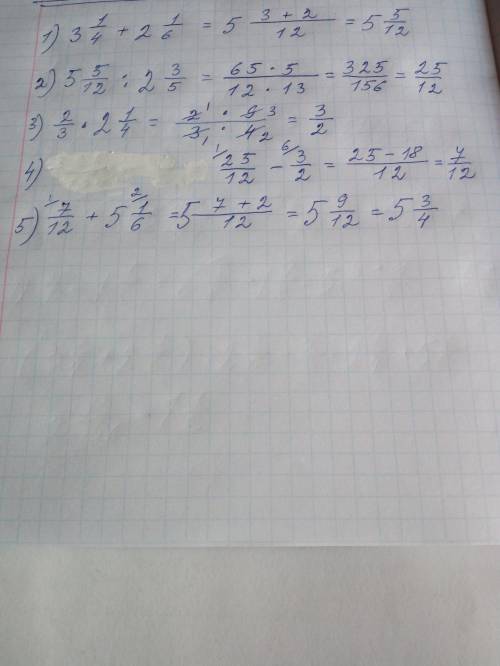 1) 3 1/4 + 2 1/6 = 5 (3 + 2)/12 = 5 5/12
2) 5 5/12 : 2 3/5 = (65 · 5)/(12 · 13) = 325/156 = 25/12
3) 2/3 · 2 1/4 = (2 1 · 9 3)/(3 1 · 4 2) = 3/2
4) 1/ 25/12 - 6/ 3/2 = (25 - 18)/12 = 7/12
5) 1/ 7/12 + 5 2/ 1/6 = 5 (7 + 2)/12 = 5 9/12 = 5 3/4